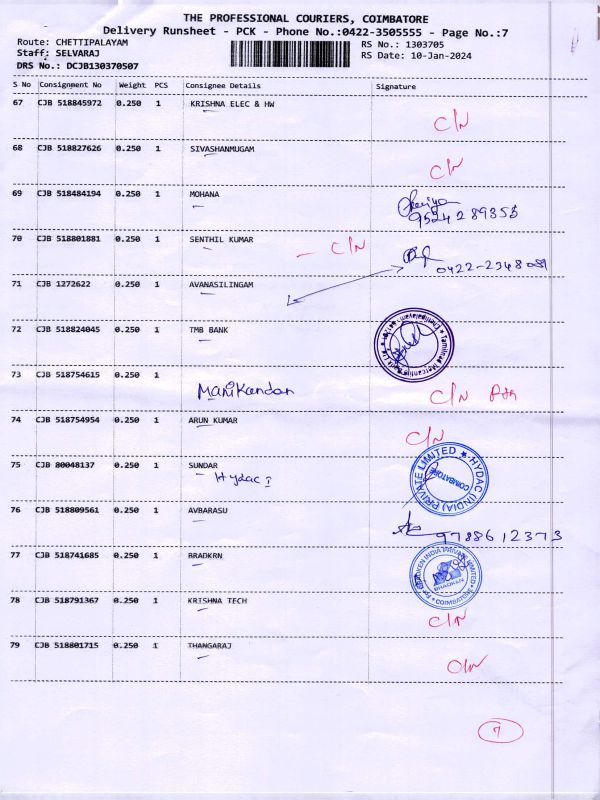 THE PROFESSIONAL COURIERS, COIMBATORE
Delivery Runsheet - PCK - Phone No.:0422-3505555 - Page No.:7
Route: CHETTIPALAYAM RS No.: 1303705
Staff: SELVARAJ RS Date: 10-Jan-2024
DRS No.: DCJB130370507
S No Consignment No Weight PCS Consignee Details Signature
67 CJB 518845972 0.250 1 KRISHNA ELEC & HW C/N
68 CJB 518827626 0.250 1 SIVASHANMUGAM C/N
69 CJB 518484194 0.250 1 MOHANA
9524289353
70 CJB 518801881 0.250 1 SENTHIL KUMAR C/N
0422-2348081
71 CJB 1272622 0.250 1 AVANASILINGAM
72 CJB 518824045 0.250 1 TMB BANK
73 CJB 518754615 0.250 1 Manikandan C/N
74 CJB 518754954 0.250 1 ARUN KUMAR C/N
75 CJB 80048137 0.250 1 SUNDAR
Hydac I
HYDAC (INDIA) PRIVATE LIMITED
COIMBATORE
76 CJB 518809561 0.250 1 AVBARASU 9788612373
77 CJB 518741685 0.250 1 BRADKRN
For BRADKEN INDIA PRIVATE LIMITED
BRADKEN
COIMBATORE
78 CJB 518791367 0.250 1 KRTSHNA TECH C/N
79 CJB 518801715 0.250 1 THANGARAJ C/N
7